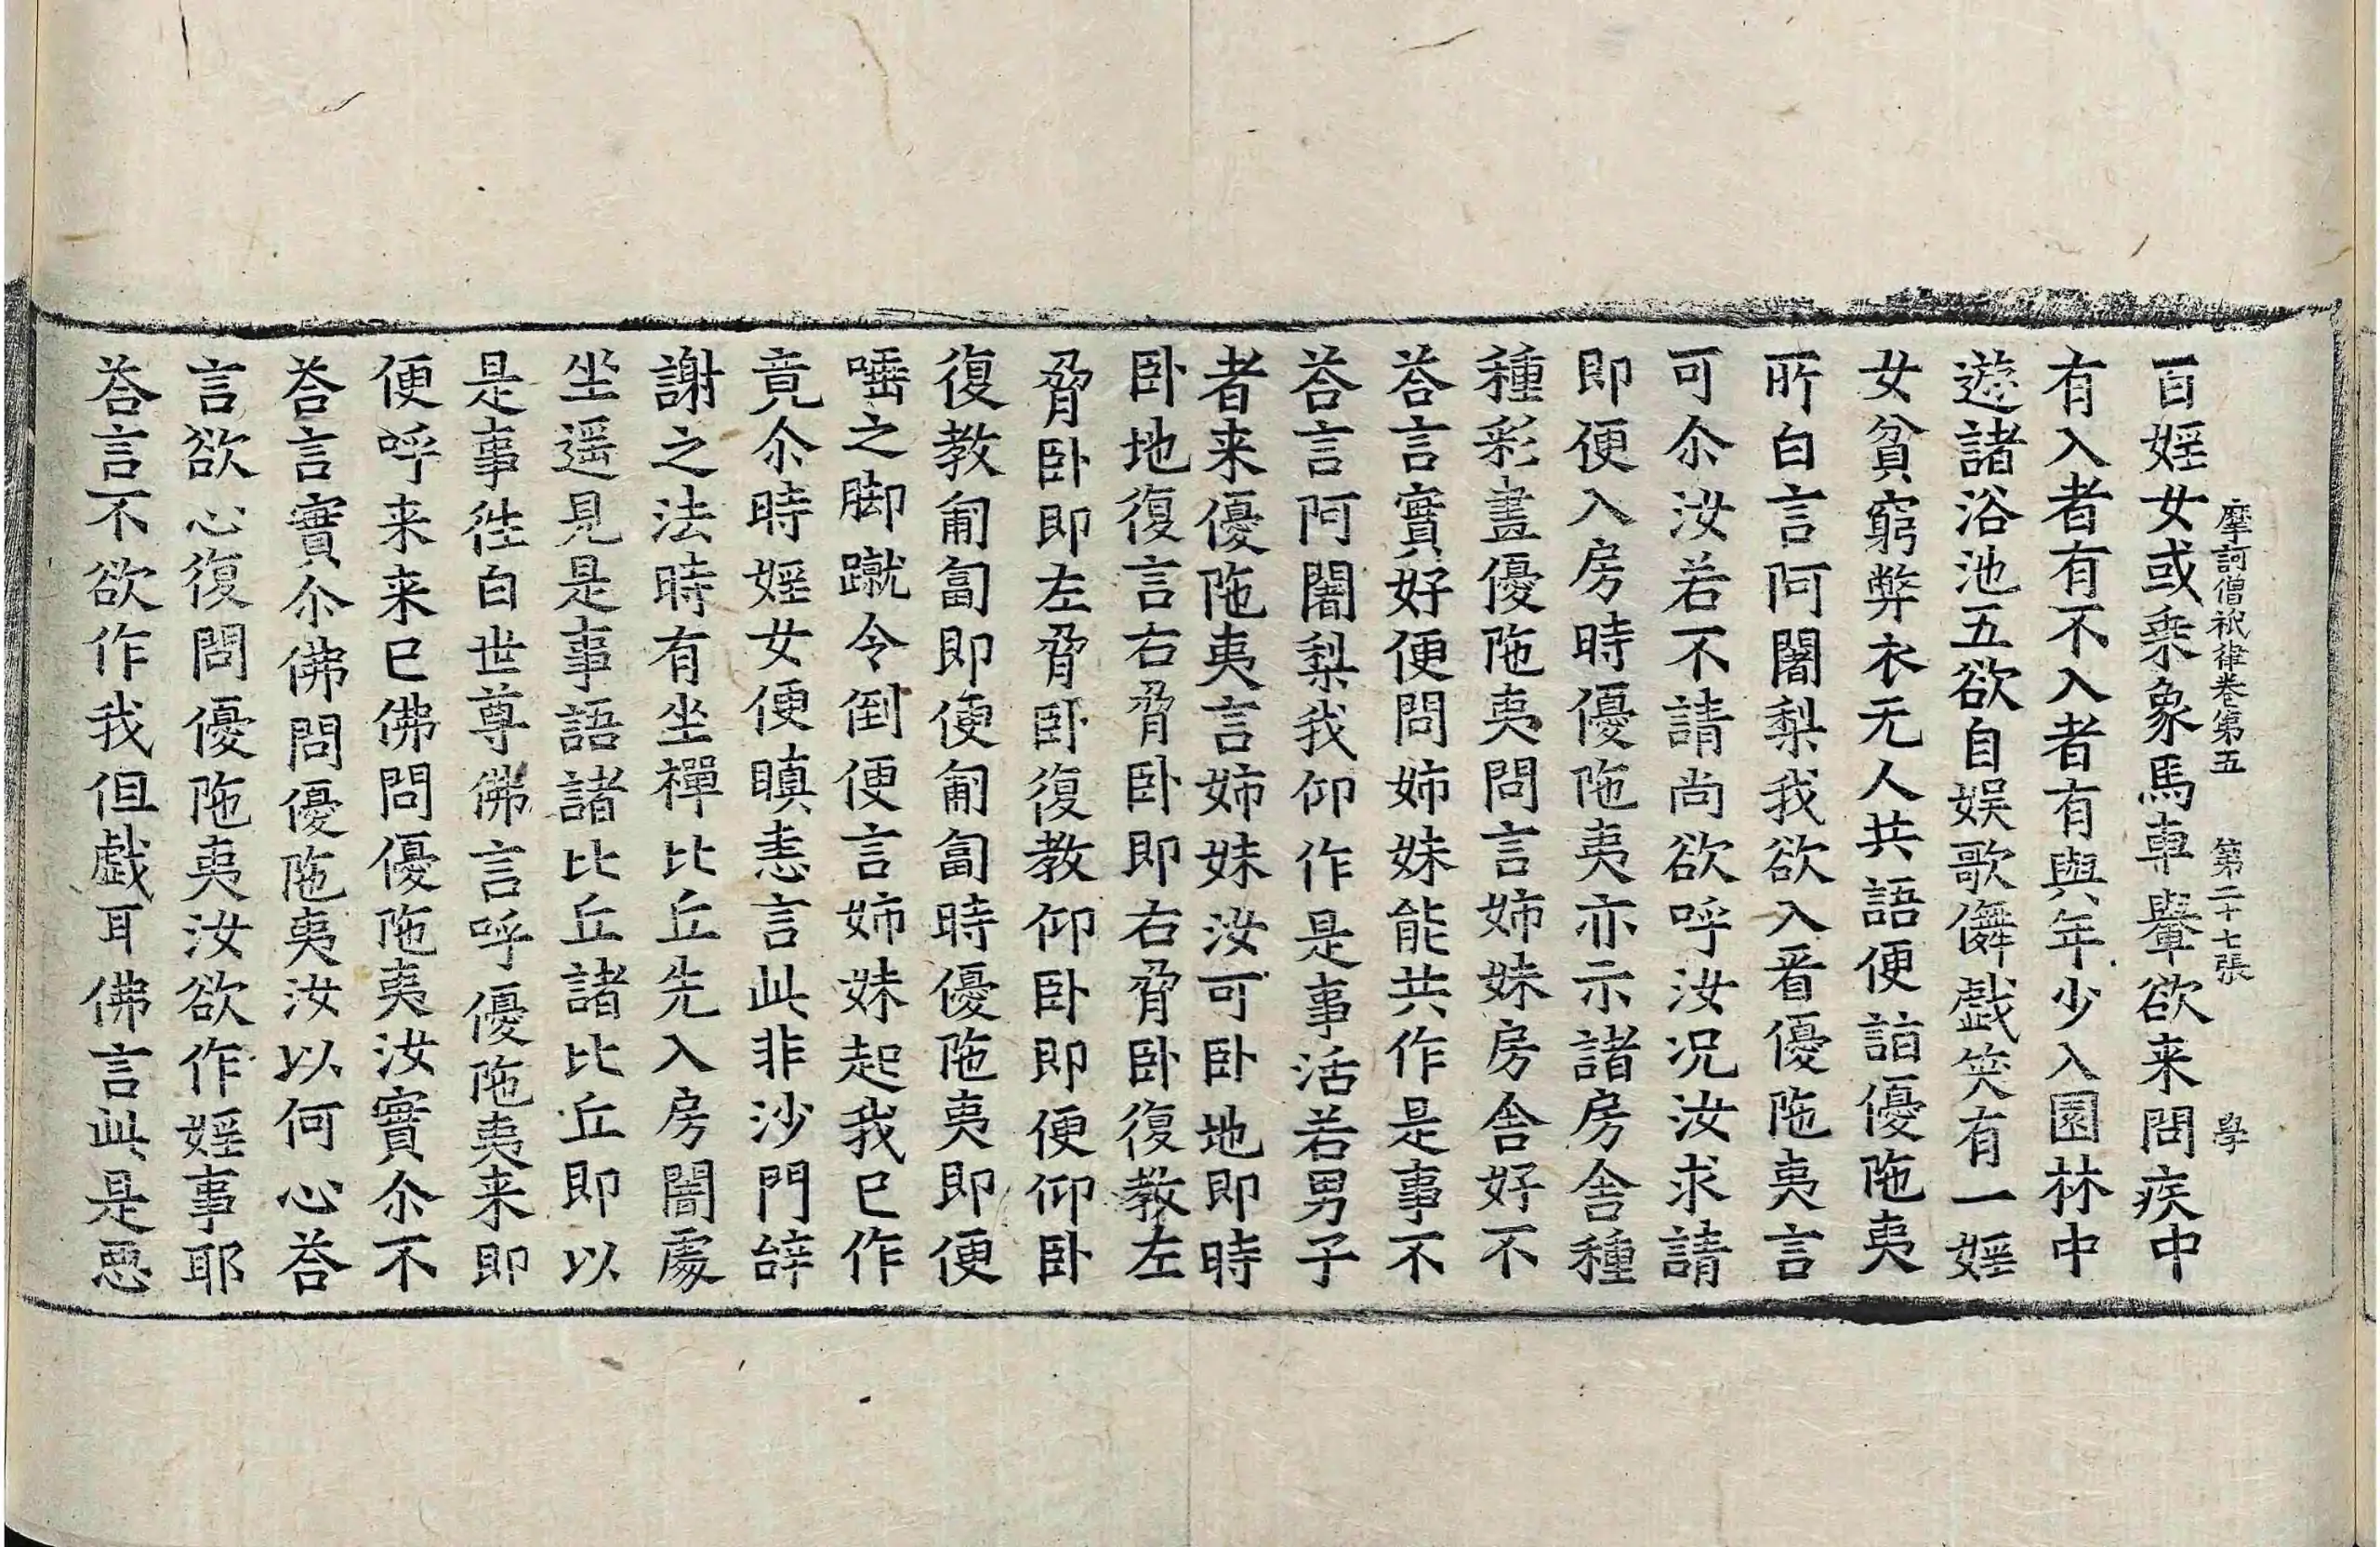 摩訶僧祇律卷第五 第二十七張 學
百婬女或乘象馬車轝欲来問疾中
有入者有不入者有與年少入園林中
遊諸浴池五欲自娱歌儛戯笑有一婬
女貧窮弊衣无人共語便詣優陁夷
所白言阿闍梨我欲入看優陁夷言
可尒汝若不請尚欲呼汝况汝求請
即便入房時優陁夷亦示諸房舎種
種彩畫優陁夷問言姉妹房舎好不
荅言實好便問姉妹能共作是事不
荅言阿闍梨我仰作是事活若男子
者来優陁夷言姉妹汝可卧地即時
卧地復言右脅卧即右脅卧復教左
脅卧即左脅卧復教仰卧即便仰卧
復教匍匐即便匍匐時優陁夷即便
唾之脚蹴令倒便言姉妹起我已作
竟尒時婬女便瞋恚言此非沙門辝
謝之法時有坐禪比丘先入房闇處
坐遥見是事語諸比丘諸比丘即以
是事徃白世尊佛言呼優陁夷来即
便呼来来已佛問優陁夷汝實尒不
荅言實尒佛問優陁夷汝以何心荅
言欲心復問優陁夷汝欲作婬事耶
荅言不欲作我但戯耳佛言此是惡